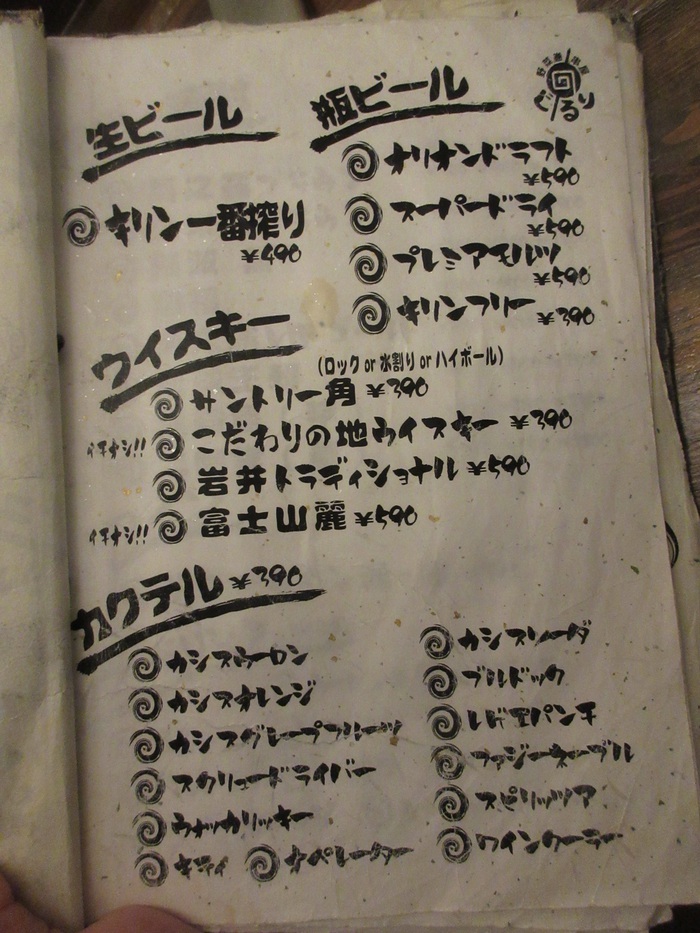 生ビール
キリン一番搾り
¥490
瓶ビール
オリオンドラフト
¥590
スーパードライ
¥590
プレミアモルツ
¥590
キリンフリー ¥390
ぐるり
ウイスキー
(ロック or 水割り or ハイボール)
サントリー角 ¥390
イチオシ!! こだわりの地ウイスキー ¥390
岩井トラディショナル ¥590
イチオシ!! 富士山麓 ¥590
カクテル ¥390
カシスウーロン
カシスオレンジ
カシスグレープフルーツ
スクリュードライバー
ウォッカリッキー
キティ オペレーター
カシスソーダ
ブルドック
レゲエパンチ
ファジーネーブル
スピリッツア
ワインクーラー